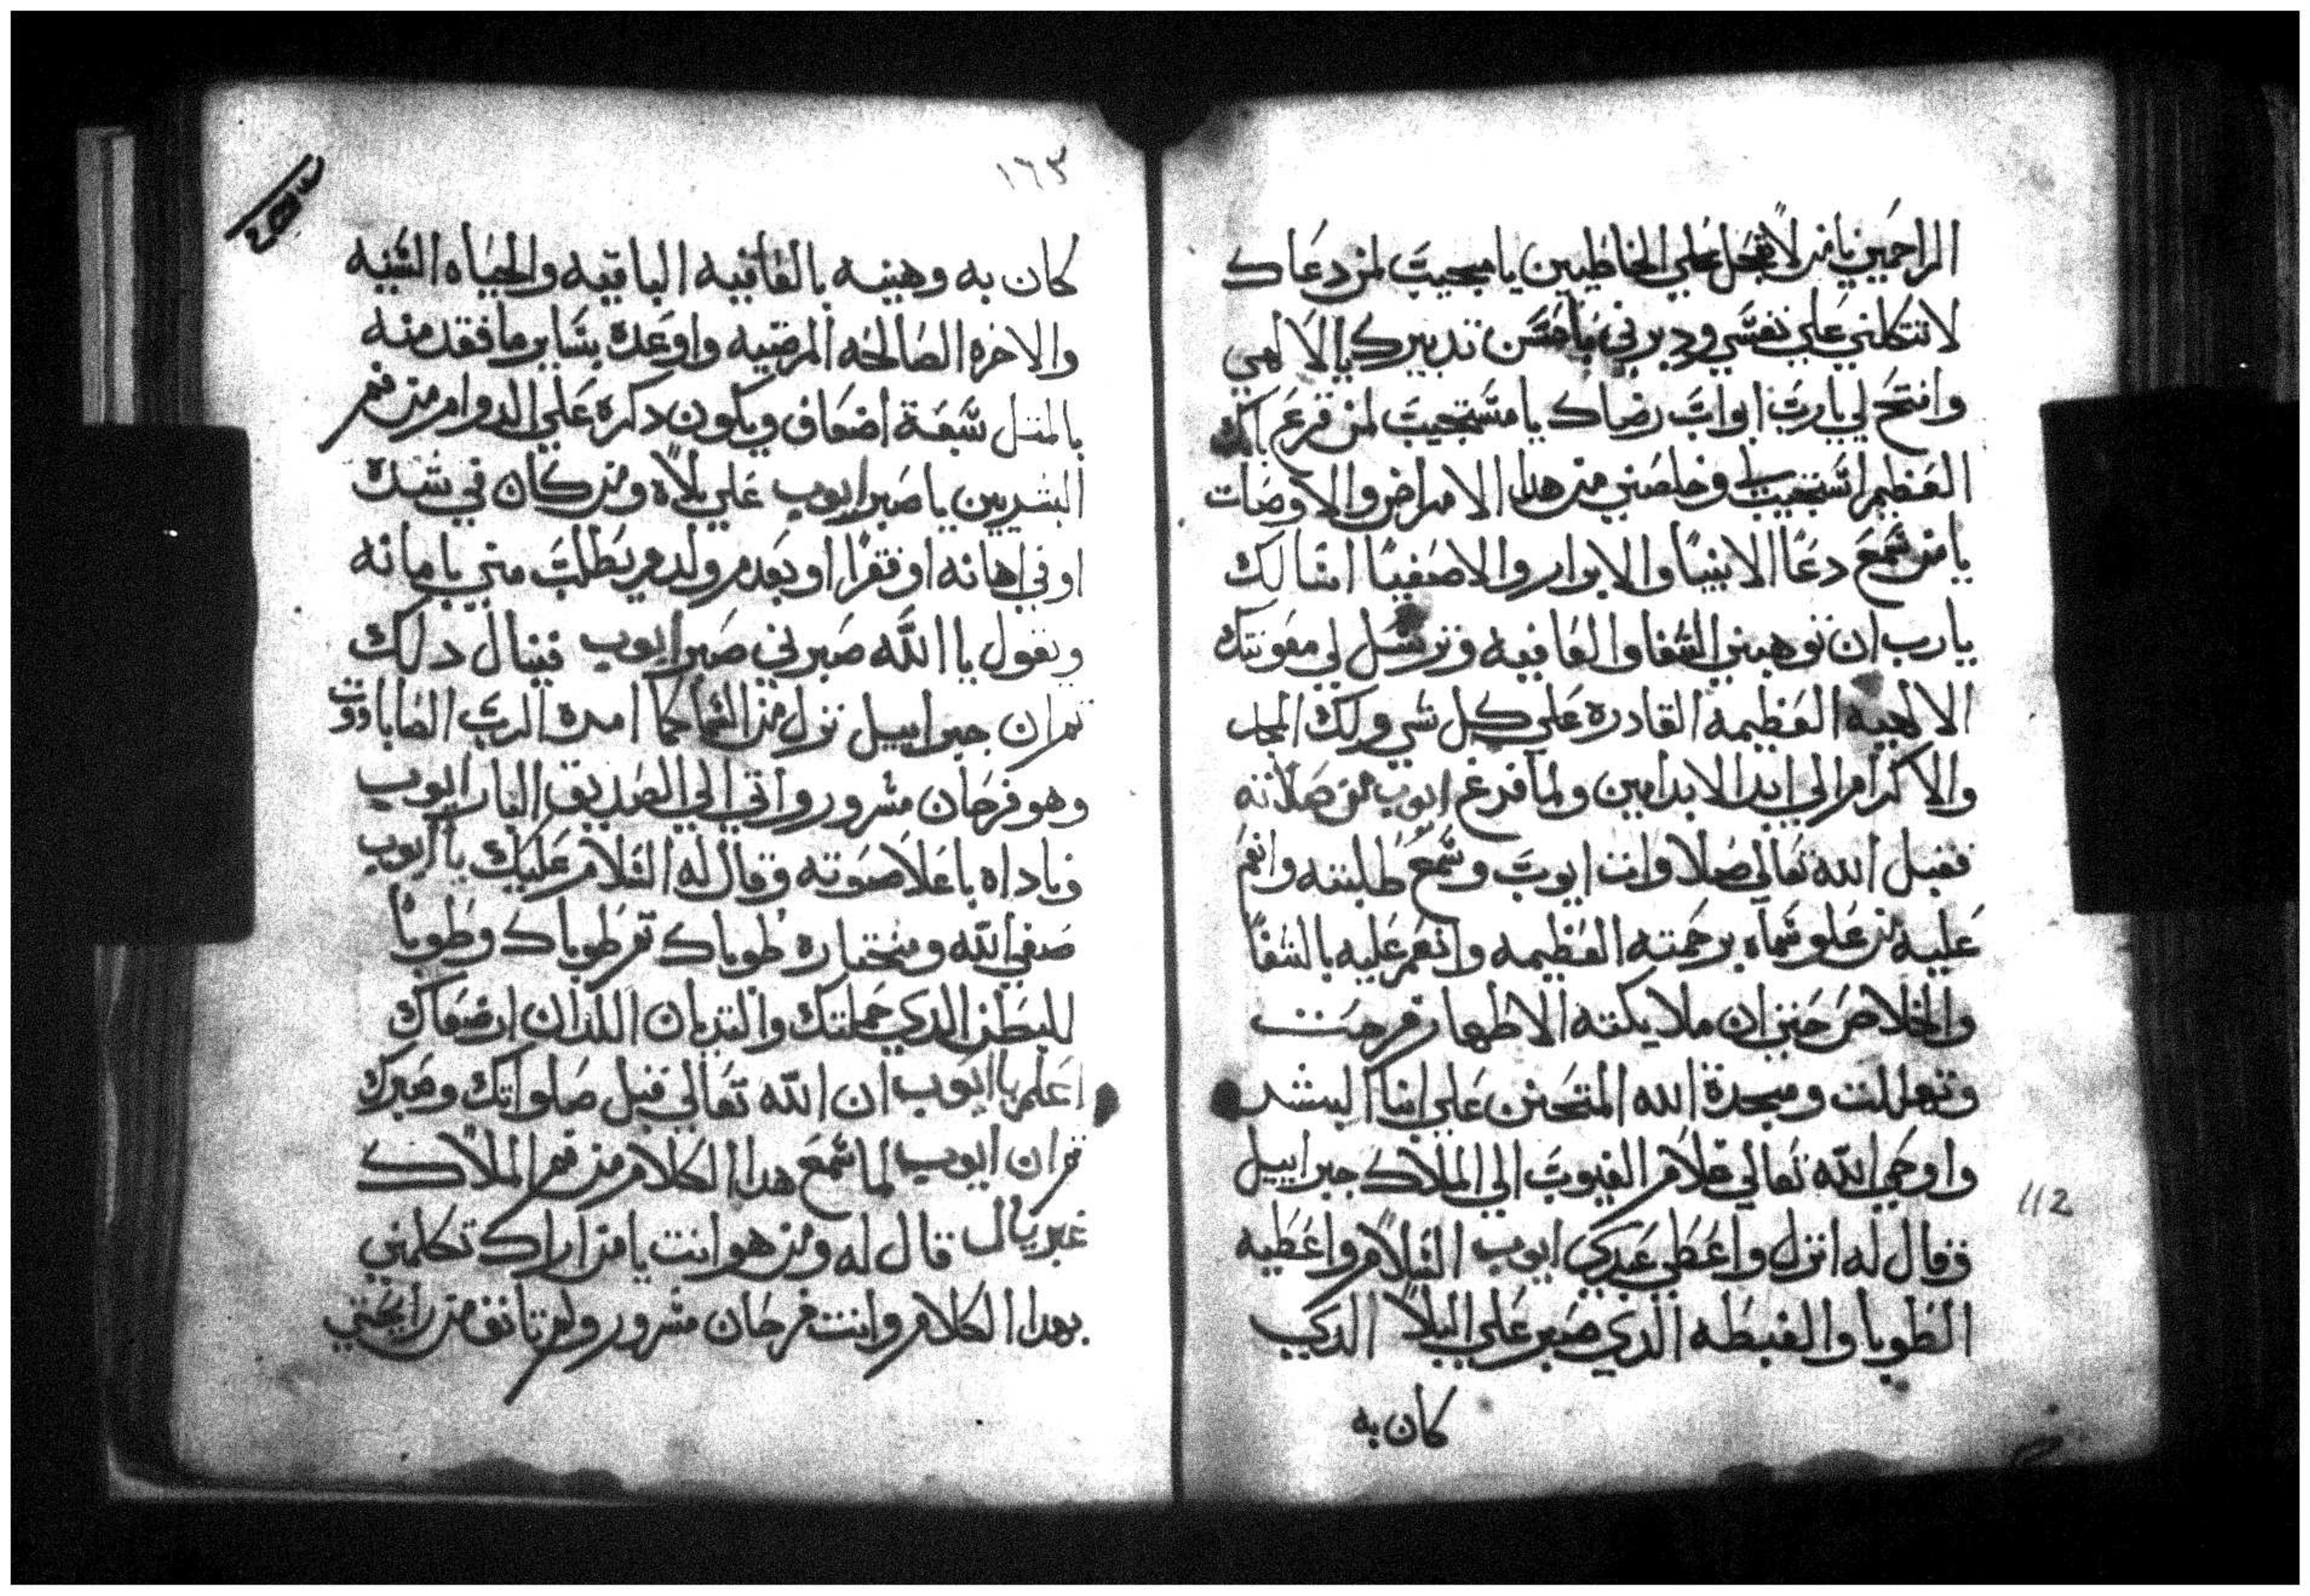 الراحمين يا من لا تعجل علي الخاطيين يا مجيب لمن دعاك
لا تتكلني علي نفسي ودبرني بأحسن تدبيرك يا الاهي
وافتح لي يا رب ابواب رضاك يا مستجيب لمن قرع بابك
العظيم استجيب لي وخلصني من هدا الامراض والاوضاات
يا من سمع دعا الانبيا والابرار والاصفيا اسالك
يا رب ان توهبني الشفا والعافيه وترسل لي معونتك
الالاهيه العظيمه القادره علي كل شي ولك المجد
والاكرام الي ابد الابد امين ولما فرغ ايوب من صلاته
فقبل الله تعالي صلاوات ايوب وسمع طلبته وانعم
عليه من علو سماه برحمته العظيمه وانعم عليه بالشفا
والخلاص حتي ان ملايكته الاطهار فرحت
وتهللت ومجدة الله المتحنن علي ابنا البشر
واوحي الله تعالي علام الغيوب الي الملاك جبراييل
وقال له انزل واعطي عبدي ايوب السلام واعطيه
الطوبا والغبطه الدي صبر علي البلا الدي
كان به
112
١٦٣
كان به وهبنه بالعافيه الباقيه والحياه السنيه
والاخره الصالحه المرضيه واوعده بساير ما فقد منه
بالمتل سبعة اضعاف ويكون دكره علي الدوام من فم
البشريين يا صبر ايوب علي بلاه ومن كان في شدة
او في اهانه او فقرا او بعدم ولد ويطلب مني بامانه
ويقول يا الله صبرني صبر ايوب فينال دلك
تم ان جبراييل نزل من السما كما امره الرب الصاباووت
وهو فرحان مسرور واتي الي الصديق البار ايوب
وناداه باعلا صوته وقال له السلام عليك يا ايوب
صفي الله ومختاره طوباك تم طوباك وطوبا
للبطن الدي حملتك والتديان اللدان ارضعاك
اعلم يا ايوب ان الله تعالي قبل صلواتك وصبرك
تم ان ايوب لما سمع هدا الكلام من فم الملاك
غبريال قال له ومن هو انت يا من اراك تكلمني
بهدا الكلام وانت فرحان مسرور ولم تانف من رايحتي